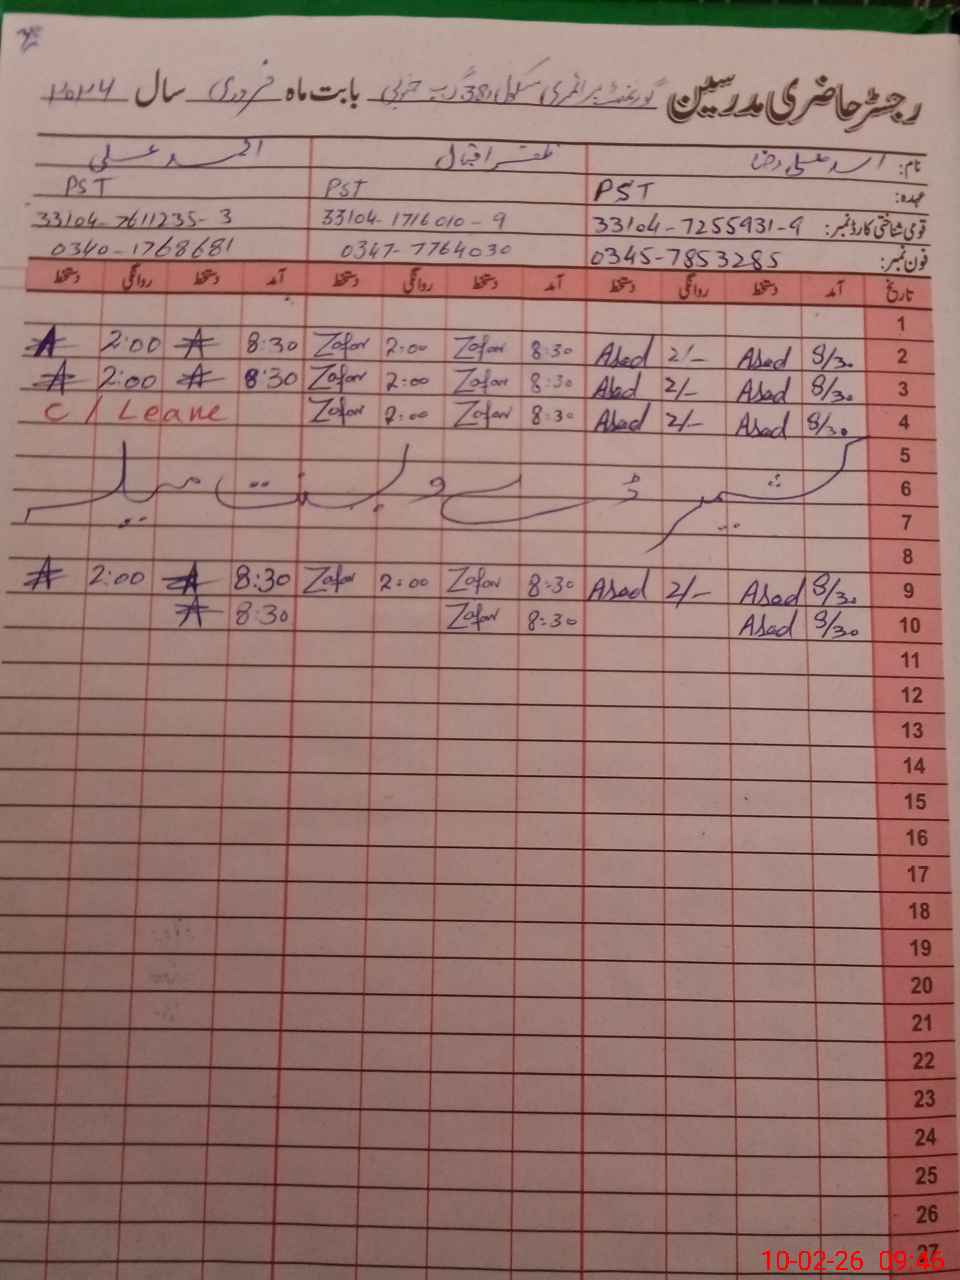 رجسٹر حاضری مدرسین گورنمنٹ پرائمری سکول 38 گ ب جنوبی بابت ماہ فروری سال ۲۰۲۶
نام: اسد علی رضا ظفر اقبال احمد علی
عہدہ: PST PST PST
قومی شناختی کارڈ نمبر: 33104-7255931-9 33104-1716010-9 33104-7611235-3
فون نمبر: 0345-7853285 0347-7764030 0340-1768681
تاریخ آمد دستخط روانگی دستخط آمد دستخط روانگی دستخط آمد دستخط روانگی دستخط
1
2 8/30 Asad 2/- Asad 8:30 Zafar 2:00 Zafar 8:30 A 2:00 A
3 8/30 Asad 2/- Asad 8:30 Zafar 2:00 Zafar 8:30 A 2:00 A
4 8/30 Asad 2/- Asad 8:30 Zafar 2:00 Zafar C/Leave
5
6
7
8
9 8/30 Asad 2/- Asad 8:30 Zafar 2:00 Zafar 8:30 A 2:00 A
10 8/30 Asad 8:30 Zafar 8:30 A
11
12
13
14
15
16
17
18
19
20
21
22
23
24
25
26
27
10-02-26 09:46